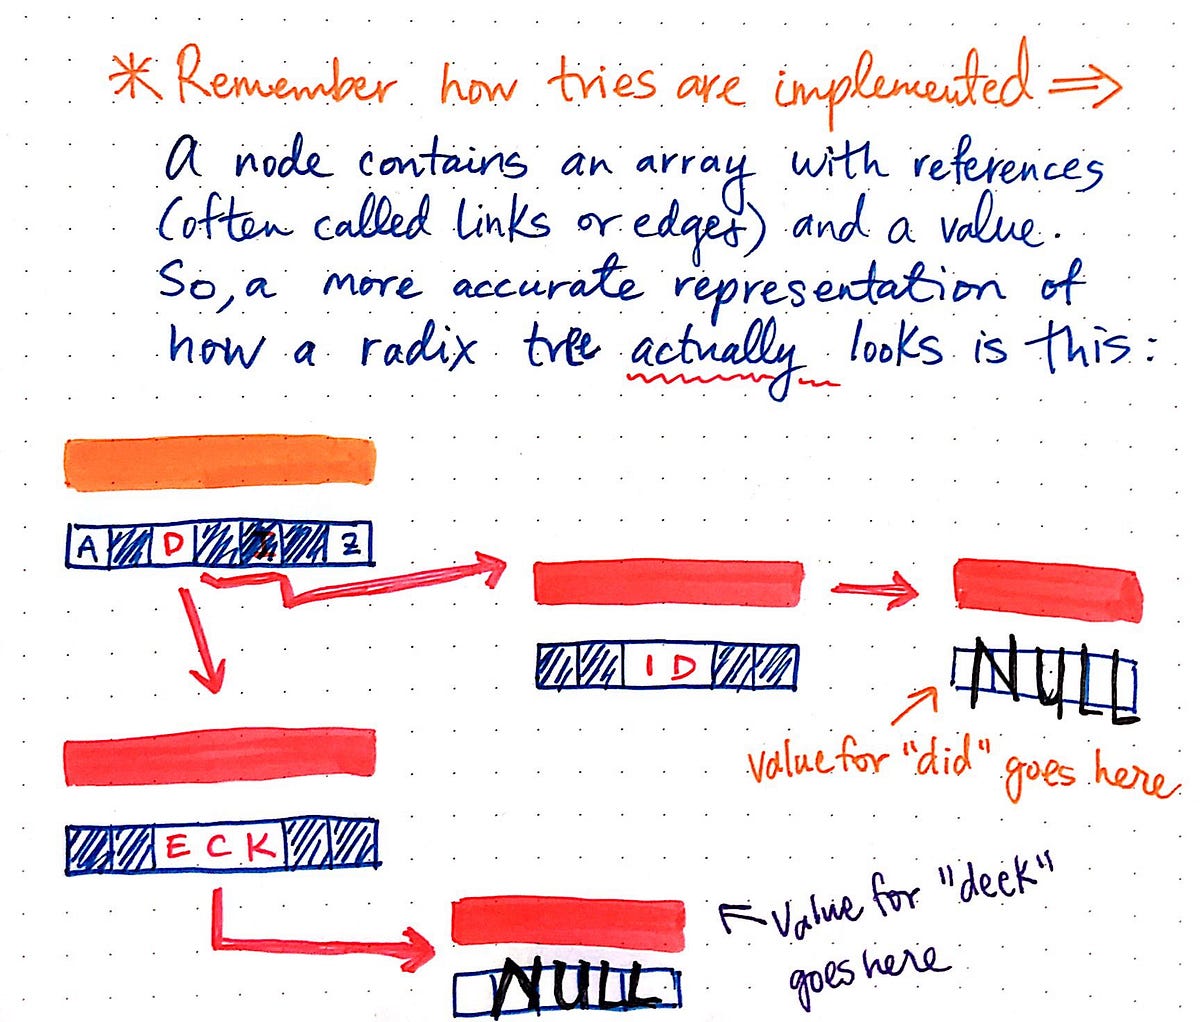 * Remember how tries are implemented ⇒
A node contains an array with references
(often called links or edges) and a value.
So, a more accurate representation of
how a radix tree actually looks is this:
A D Z
I D
NULL
value for "did" goes here
E C K
NULL
← Value for "deck"
goes here